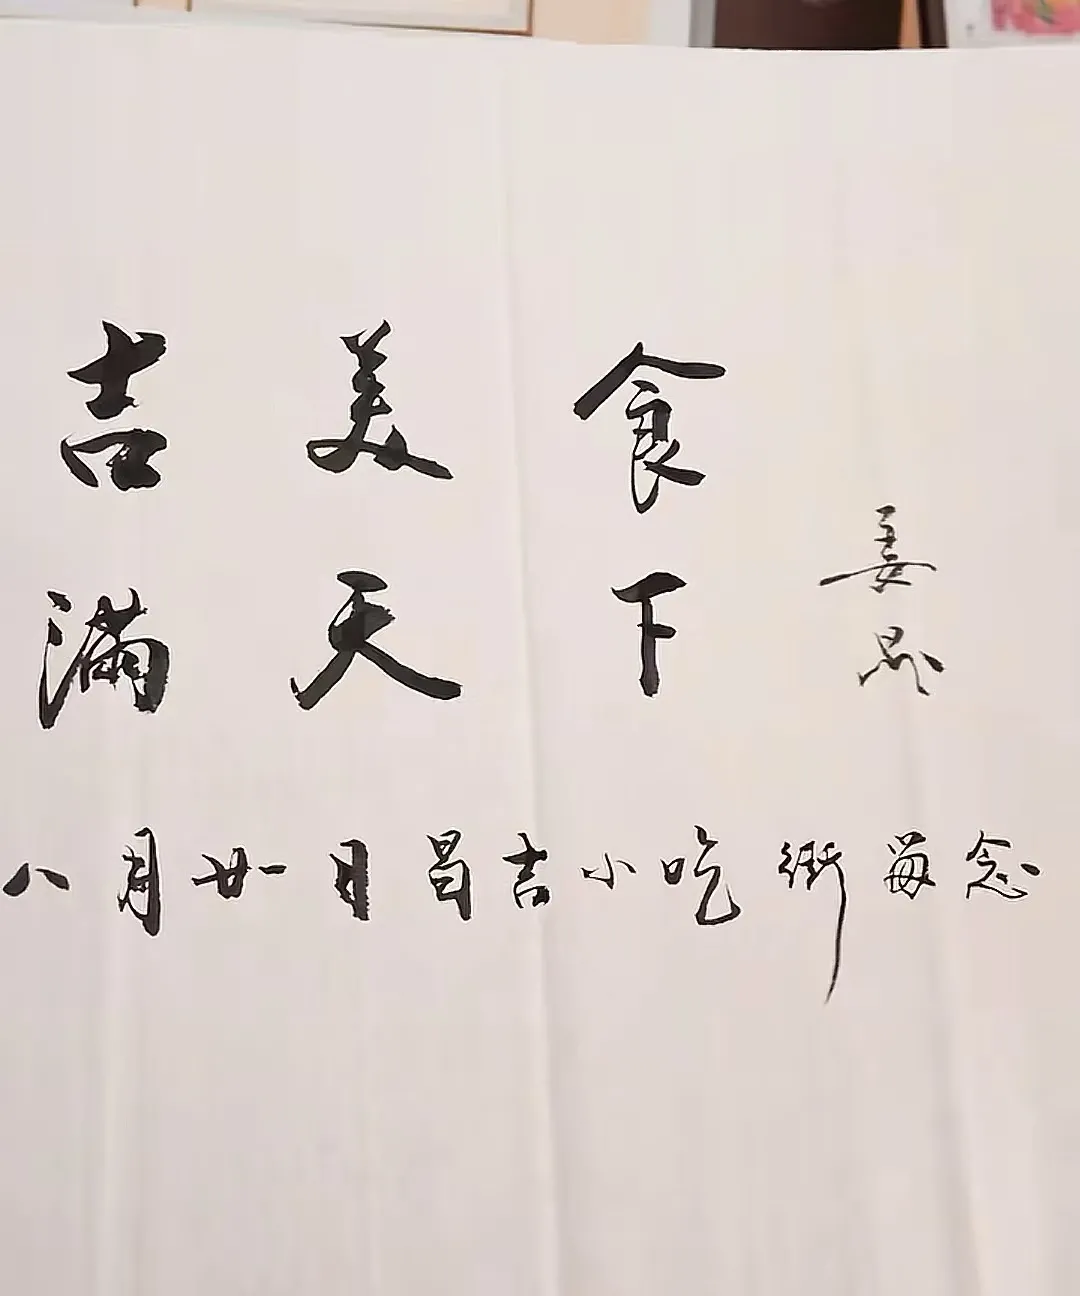 吉美食
滿天下
姜昆
八月廿一日昌吉小吃街留念